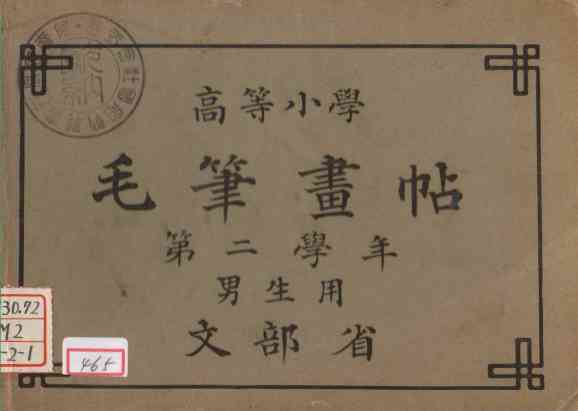 高等小學
毛筆畫帖
第二學年
男生用
文部省
30.72
M2
-2-1
465